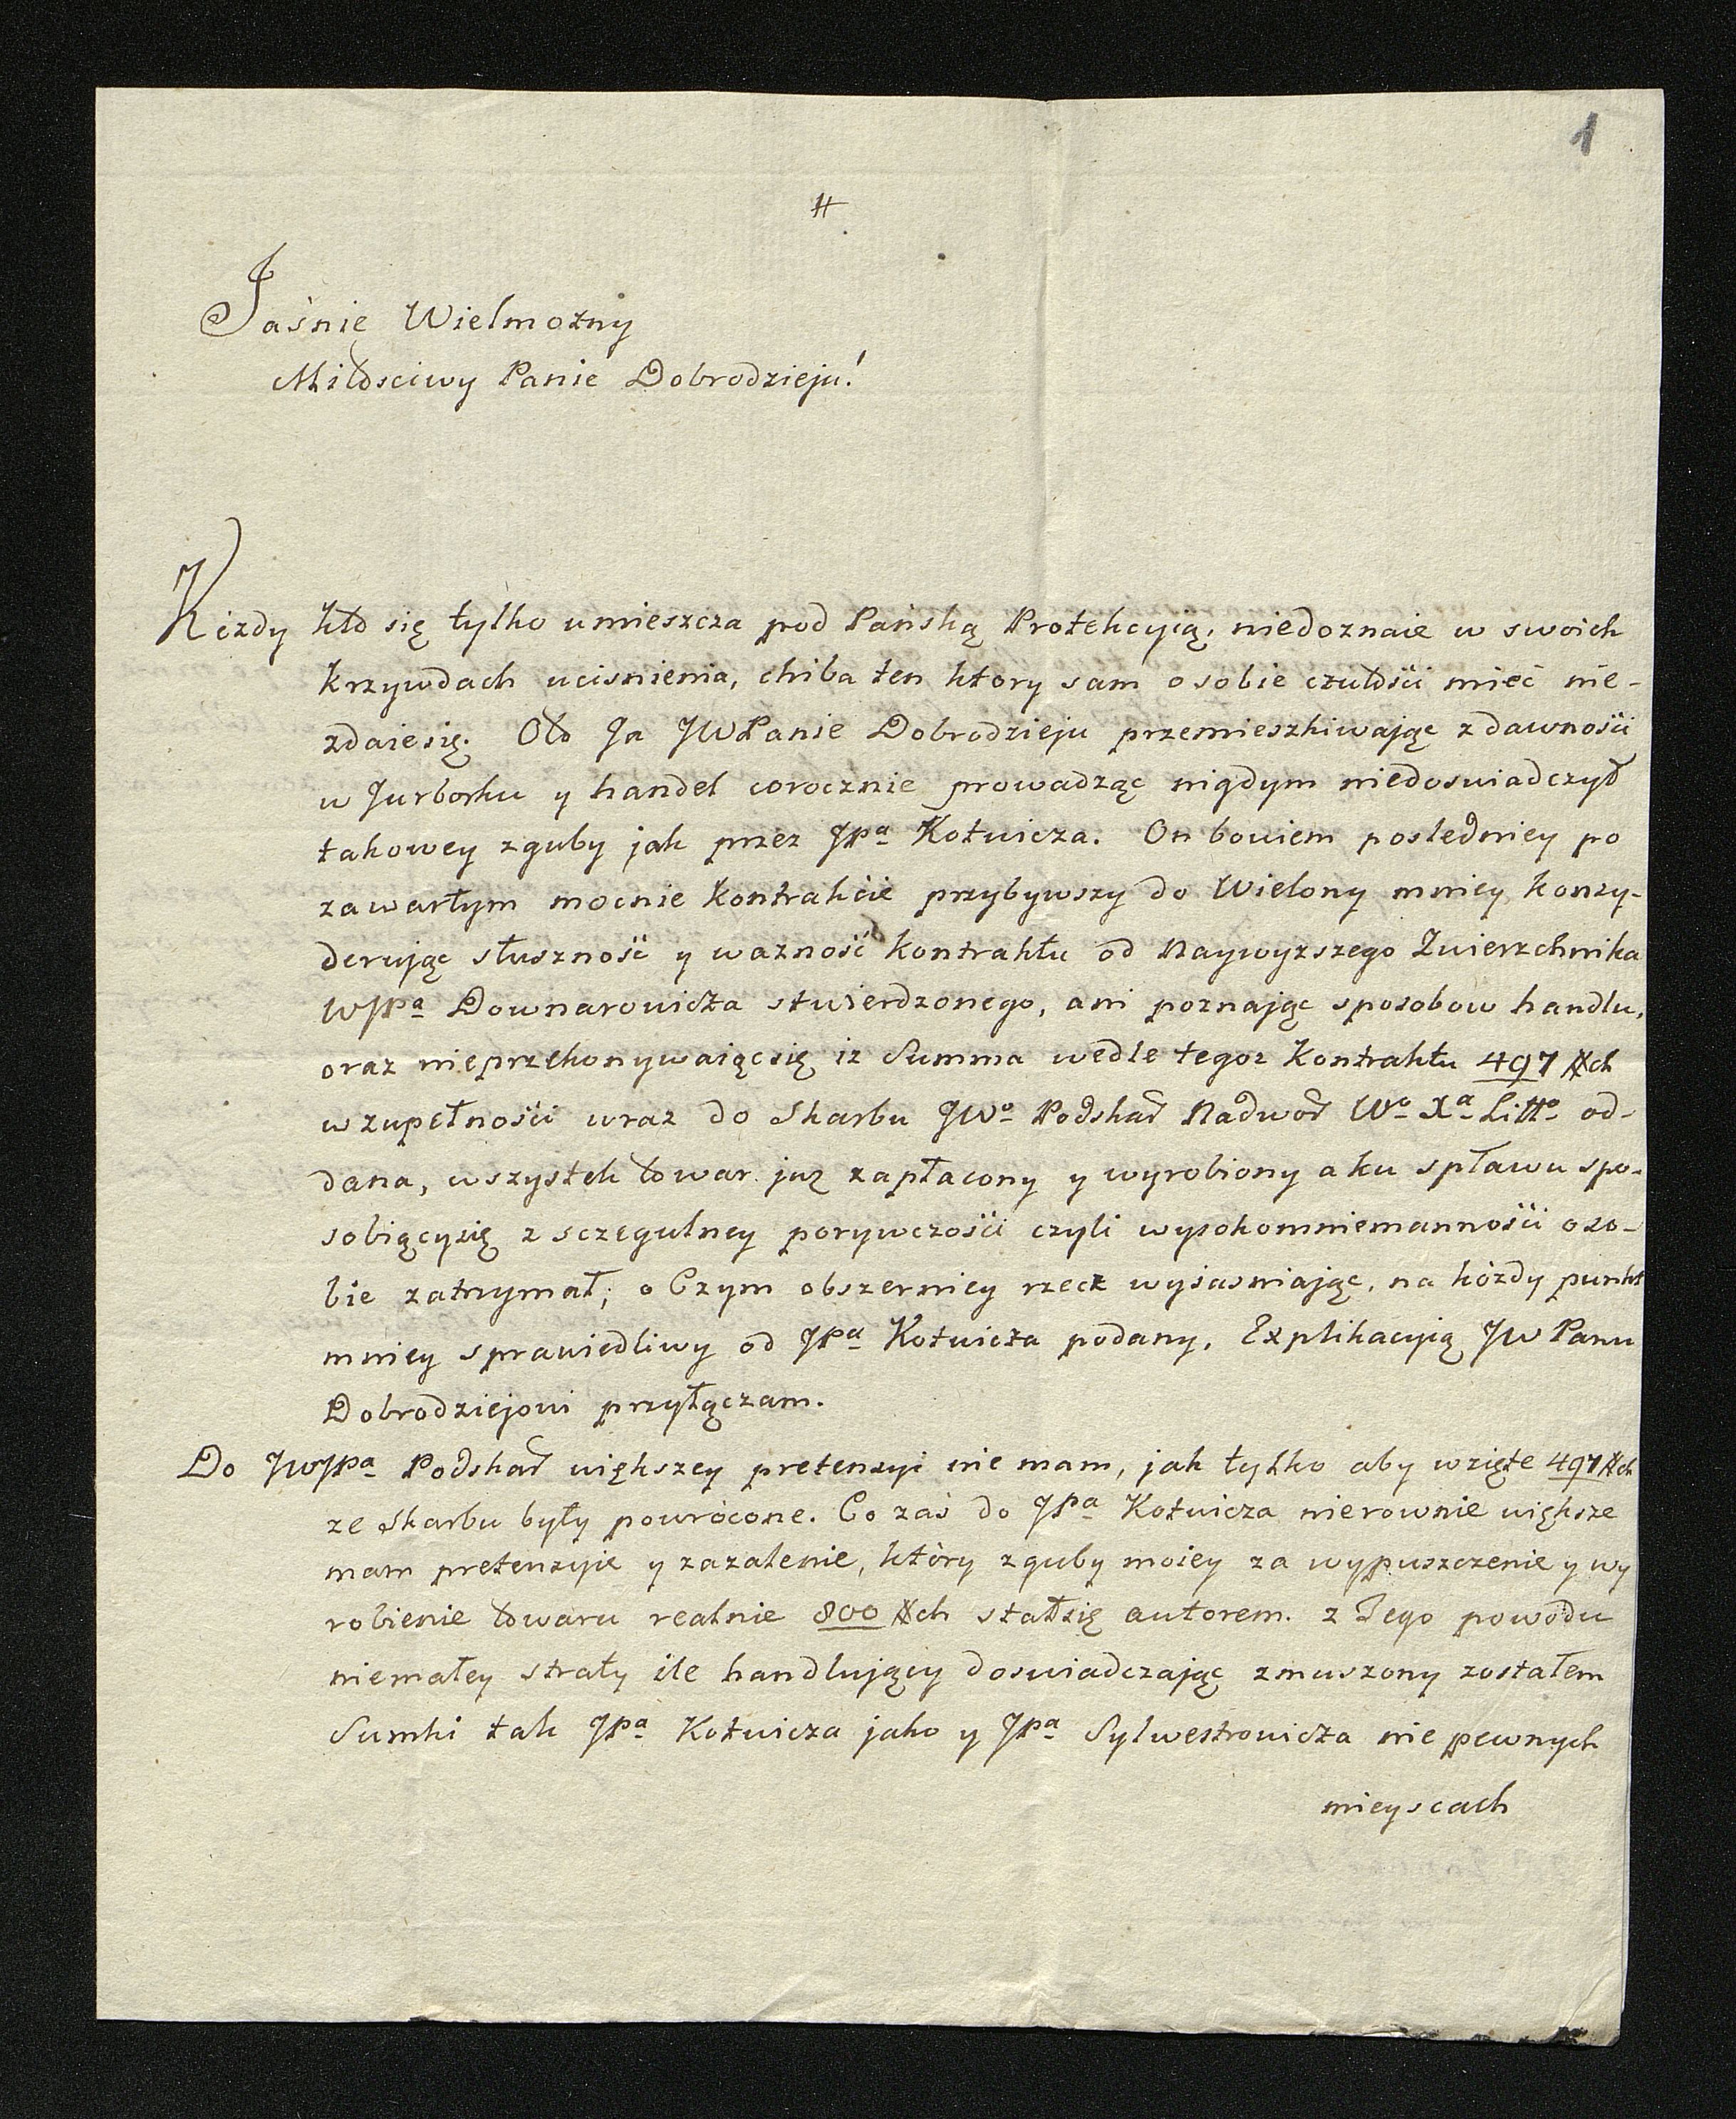 1
#
Jaśnie Wielmozny
Miłosciwy Panie Dobrodzieju!
Kózdy kto się tylko umieszcza pod Pańską Protekcyią, niedoznaie w swoich
krzywdach ucisnienia, chiba ten ktory sam o sobie czułości mieć nie-
zdaie się. Oto Ja JWPanie Dobrodzieju przemieszkiwając zdawności
w Jurborku y handel corocznie prowadząc nigdym niedoswiadczył
takowey zguby jak przez JPa Kotwicza. On bowiem posledniey po
zawartym mocnie kontrakcie przybywszy do Wielony mniey konzy-
derując słuszność y wazność kontraktu od Naywyzszego Zwierzchnika
WJPa Downarowicza stwierdzonego, ani poznając sposobow handlu,
oraz nieprzekonywaiąc się iz Summa wedle tegoz Kontraktu 497 #ch
w zupełności wraz do Skarbu JWo Podskar Nadwor Wo Xa Litto od-
dana, wszystek towar juz zapłacony y wyrobiony a ku spławu spo-
sobiący się z sczegulney porywczości czyli wysokomniemanności o so-
bie zatrzymał; o Czym obszerniey rzecz wyiasniając, na kózdy punkt
mniey sprawiedliwy od JPa Kotwicza podany, Explikacyią JW Panu
Dobrodziejowi przyłączam.
Do JWJPa Podskar większey pretensyi nie mam, jak tylko aby wzięte 497 #ch
ze Skarbu były powrócone. Co zaś do JPa Kotwicza nierownie większe
mam pretensyie y zazalenie, który zguby moiey za wypuszczenie y wy
robienie towaru realnie 800 #ch stał się autorem. z Tego powodu
niemałey straty ile handlujący doswiadczając zmuszony zostałem
Sumki tak JPa Kotwicza jako y JPa Sylwestrowicza nie pewnych
mieyscach